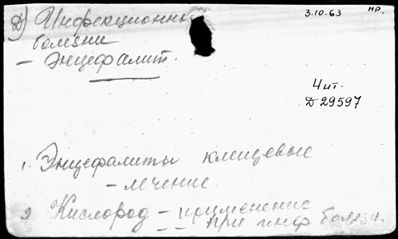 Д) Инфекционн
3.10.63
нр.
болезни
– Энцефалит.
Чит.
Д 29597
1. Энцефалиты клещевые
– лечение
2 Кислород – применение
при инф болезн.